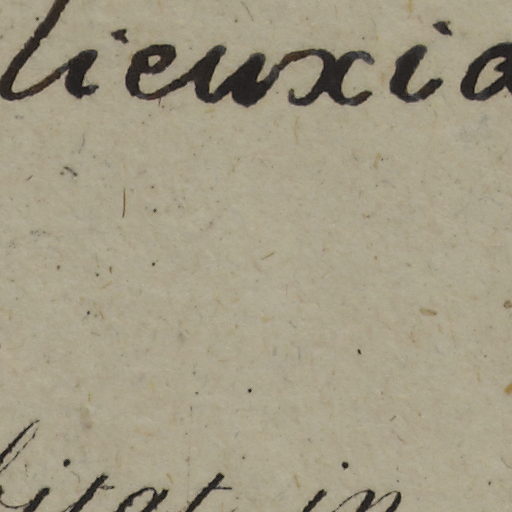 lieuxia
bitat in